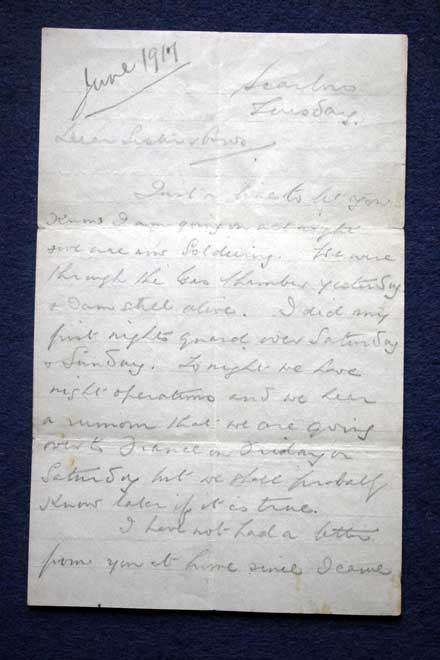 June 1917
Scarboro
Tuesday.
Dear Sisters & Bros
Just a line to let you
know I am going on all right
we are now Soldiering. We were
through the Gas Chamber yesterday
& I am still alive. I did my
first nights guard over Saturday
& Sunday. To night we have
night operations and we hear
a rumour that we are going
over to France on Friday or
Saturday but we shall probably
know later if it is true.
I have not had a letter
from you at home since I came